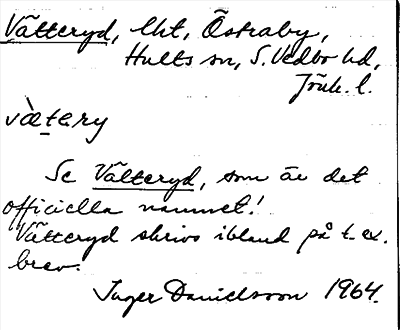 Vätteryd, lht, Östraby,
Hults sn, S. Vedbo hd,
Jönk. l.
vä̀tery
Se Välteryd, som är det
officiella namnet!
Vätteryd skrivs ibland på t. ex.
brev.
Inger Danielsson 1964.